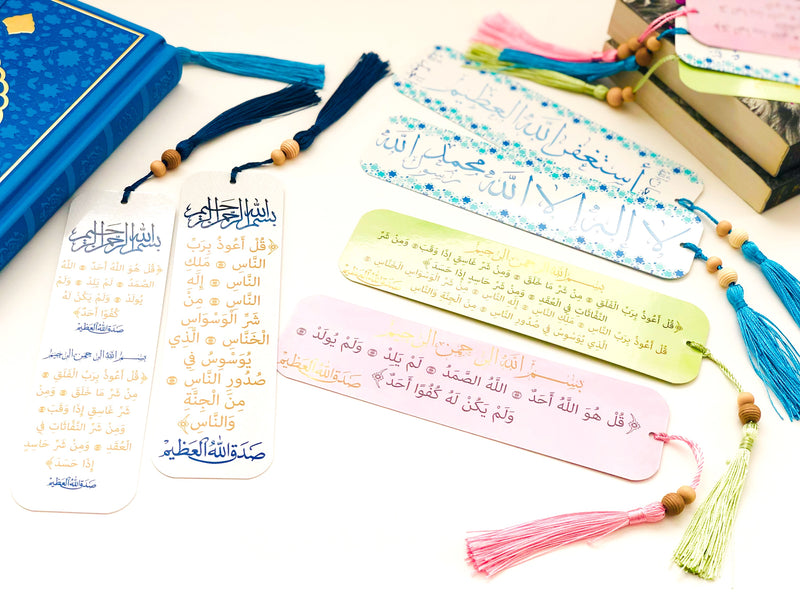 بسم الله الرحمن الرحيم
﴿قُلْ هُوَ اللَّهُ أَحَدٌ ۝ اللَّهُ
الصَّمَدُ ۝ لَمْ يَلِدْ ۝ وَلَمْ
يُولَدْ ۝ وَلَمْ يَكُنْ لَهُ
كُفُوًا أَحَدٌ﴾
صدق الله العظيم
بسم الله الرحمن الرحيم
﴿قُلْ أَعُوذُ بِرَبِّ الْفَلَقِ ۝
مِنْ شَرِّ مَا خَلَقَ ۝ وَمِنْ
شَرِّ غَاسِقٍ إِذَا وَقَبَ ۝
وَمِنْ شَرِّ النَّفَّاثَاتِ فِي
الْعُقَدِ ۝ وَمِنْ شَرِّ حَاسِدٍ
إِذَا حَسَدَ﴾
صدق الله العظيم
بسم الله الرحمن الرحيم
﴿قُلْ أَعُوذُ بِرَبِّ
النَّاسِ ۝ مَلِكِ
النَّاسِ ۝ إِلَهِ
النَّاسِ ۝ مِنْ
شَرِّ الْوَسْوَاسِ
الْخَنَّاسِ ۝ الَّذِي
يُوَسْوِسُ فِي
صُدُورِ النَّاسِ ۝
مِنَ الْجِنَّةِ
وَالنَّاسِ﴾
صدق الله العظيم
أستغفر الله العظيم
لا إله إلا الله محمد رسول الله
بسم الله الرحمن الرحيم
﴿قُلْ أَعُوذُ بِرَبِّ الْفَلَقِ ۝ مِنْ شَرِّ مَا خَلَقَ ۝ وَمِنْ شَرِّ غَاسِقٍ إِذَا وَقَبَ ۝ وَمِنْ شَرِّ
النَّفَّاثَاتِ فِي الْعُقَدِ ۝ وَمِنْ شَرِّ حَاسِدٍ إِذَا حَسَدَ﴾
قُلْ أَعُوذُ بِرَبِّ النَّاسِ ۝ مَلِكِ النَّاسِ ۝ إِلَهِ النَّاسِ ۝ مِنْ شَرِّ الْوَسْوَاسِ الْخَنَّاسِ ۝
الَّذِي يُوَسْوِسُ فِي صُدُورِ النَّاسِ ۝ مِنَ الْجِنَّةِ وَالنَّاسِ
بسم الله الرحمن الرحيم
﴿قُلْ هُوَ اللَّهُ أَحَدٌ ۝ اللَّهُ الصَّمَدُ ۝ لَمْ يَلِدْ ۝ وَلَمْ يُولَدْ ۝
وَلَمْ يَكُنْ لَهُ كُفُوًا أَحَدٌ﴾
صدق الله العظيم